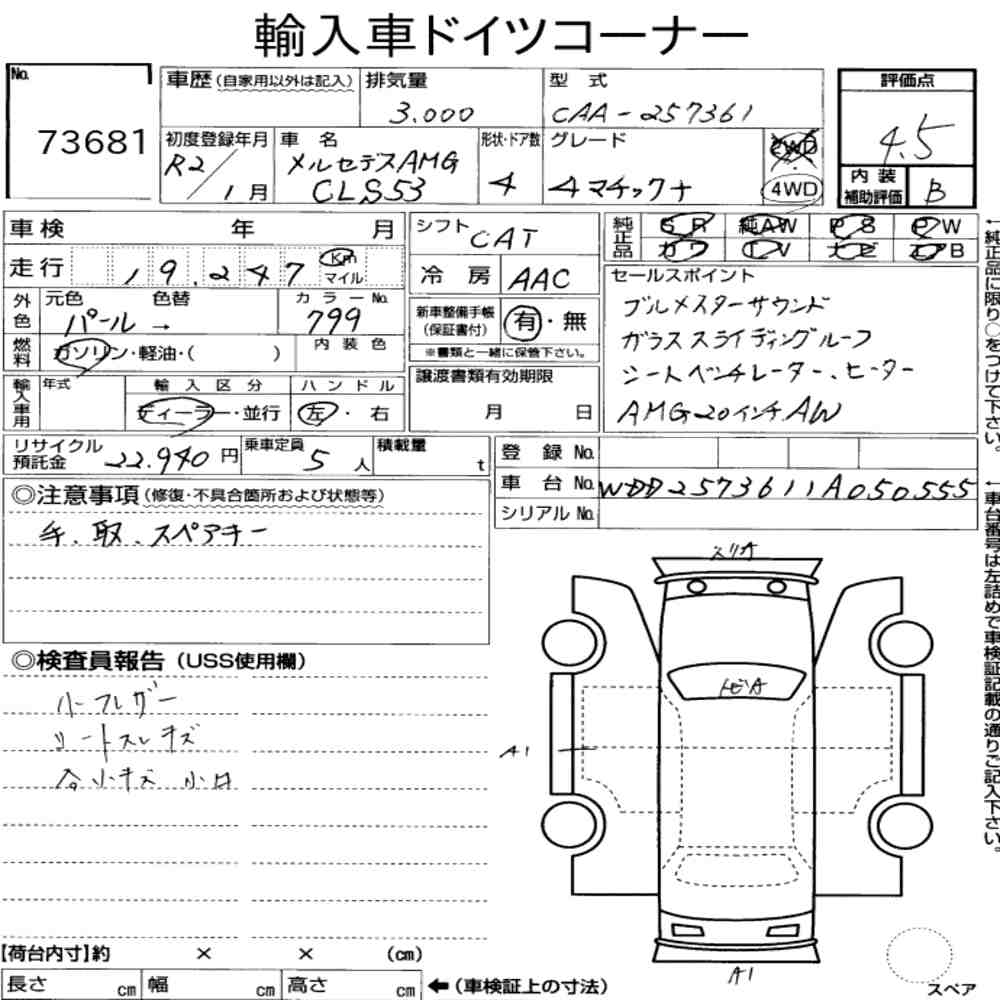 輸入車ドイツコーナー
No.
73681
車歴(自家用以外は記入)
排気量
3.000
型式
CAA-257361
評価点
4.5
内装
補助評価
B
初度登録年月
R2/1月
車名
メルセデスAMG
CLS53
形状・ドア数
4
グレード
4マチック+
2WD
4WD
車検 年 月
走行
19.247
Km
マイル
外色
元色 色替
パール→
カラーNo.
799
燃料
ガソリン・軽油・( )
内装色
輸入車用
年式
輸入区分
ディーラー・並行
ハンドル
左・右
シフト
CAT
冷房
AAC
新車整備手帳
(保証書付)
有・無
※書類と一緒に保管下さい。
譲渡書類有効期限
月 日
純正品
SR 純AW PS PW
カワ TV ナビ エアB
セールスポイント
ブルメスターサウンド
ガラススライディングルーフ
シートベンチレーター、ヒーター
AMG20インチAW
←純正品に限り○をつけて下さい。
リサイクル
預託金
22.940円
乗車定員
5人
積載量
t
登録No.
車台No.
WDD2573611A050555
シリアルNo.
←車台番号は左詰めで車検証記載の通りご記入下さい。
◎注意事項(修復・不具合箇所および状態等)
手、取、スペアキー
◎検査員報告(USS使用欄)
小フレガー
シートスレキズ
各小キズ 小凹
スリキ
トビA
A1
A1
スペア
【荷台内寸】約 × × (cm)
長さ cm
幅 cm
高さ cm
←(車検証上の寸法)